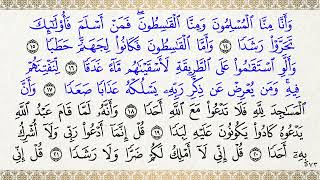 وَأَنَّا مِنَّا ٱلْمُسْلِمُونَ وَمِنَّا ٱلْقَٰسِطُونَ ۖ فَمَنْ أَسْلَمَ فَأُو۟لَٰٓئِكَ
تَحَرَّوْا۟ رَشَدًا ١٤ وَأَمَّا ٱلْقَٰسِطُونَ فَكَانُوا۟ لِجَهَنَّمَ حَطَبًا ١٥
وَأَلَّوِ ٱسْتَقَٰمُوا۟ عَلَى ٱلطَّرِيقَةِ لَأَسْقَيْنَٰهُم مَّآءً غَدَقًا ١٦ لِّنَفْتِنَهُمْ
فِيهِ ۚ وَمَن يُعْرِضْ عَن ذِكْرِ رَبِّهِۦ يَسْلُكْهُ عَذَابًا صَعَدًا ١٧ وَأَنَّ
ٱلْمَسَٰجِدَ لِلَّهِ فَلَا تَدْعُوا۟ مَعَ ٱللَّهِ أَحَدًا ١٨ وَأَنَّهُۥ لَمَّا قَامَ عَبْدُ ٱللَّهِ
يَدْعُوهُ كَادُوا۟ يَكُونُونَ عَلَيْهِ لِبَدًا ١٩ قُلْ إِنَّمَآ أَدْعُوا۟ رَبِّى وَلَآ أُشْرِكُ
بِهِۦٓ أَحَدًا ٢٠ قُلْ إِنِّى لَآ أَمْلِكُ لَكُمْ ضَرًّا وَلَا رَشَدًا ٢١ قُلْ إِنِّى
٥٧٣